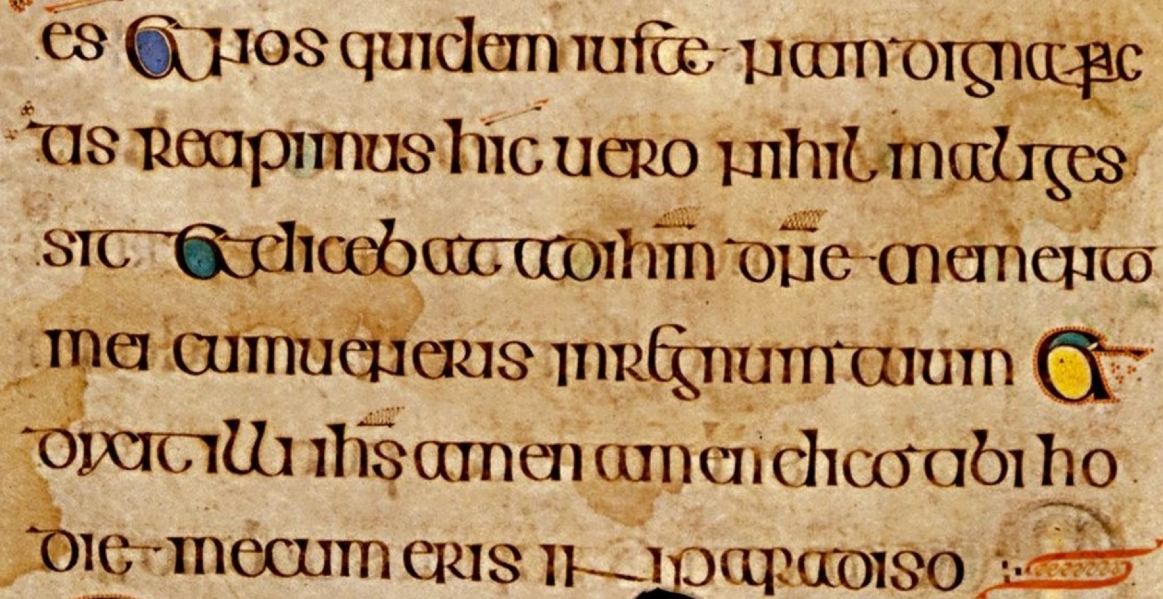 es Et nos quidem iuste nam digna fac
tis recipimus hic uero nihil mali ges
sit Et dicebat ad ihm̄ dn̄e memento
mei cum ueneris in regnum tuum Et
dixit illi ih̄s amen amen dico tibi ho
die mecum eris in paradiso